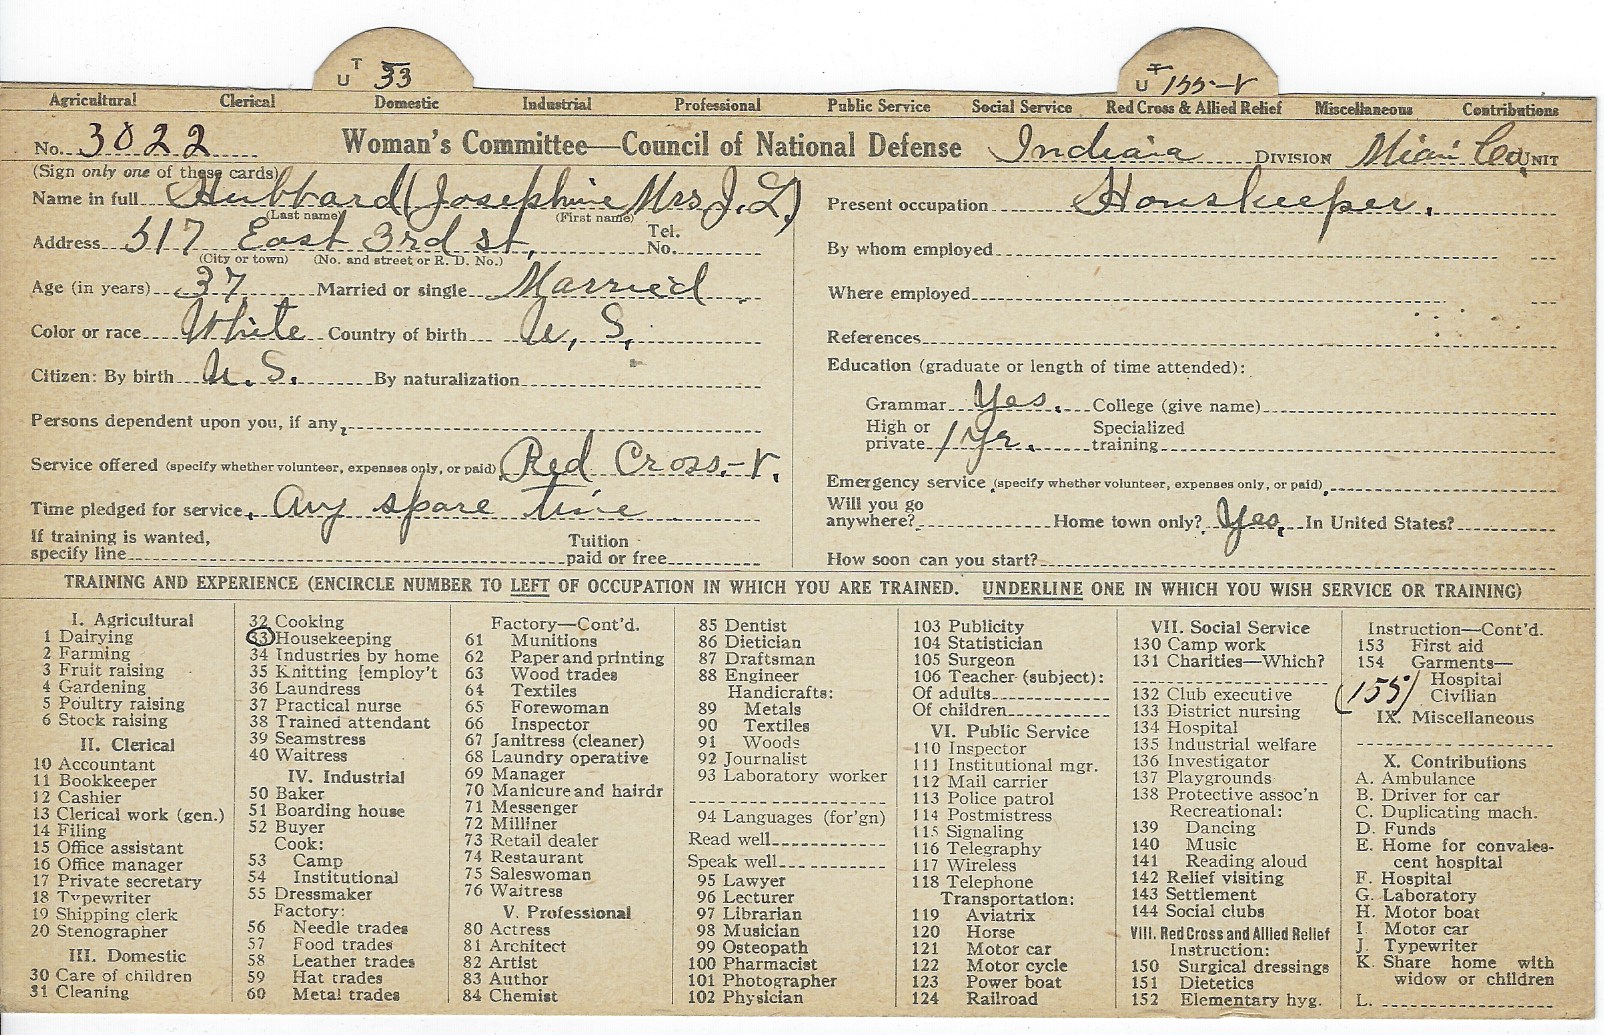 U T 33
U T 155-V
Agricultural Clerical Domestic Industrial Professional Public Service Social Service Red Cross & Allied Relief Miscellaneous Contributions
No. 3022 Woman's Committee—Council of National Defense Indiana DIVISION Miami Co. UNIT
(Sign only one of these cards)
Name in full Hubbard (Josephine Mrs J. L.)
(Last name) (First name)
Address 517 East 3rd st. Tel. No.
(City or town) (No. and street or R. D. No.)
Age (in years) 37 Married or single Married
Color or race White Country of birth U. S.
Citizen: By birth U. S. By naturalization
Persons dependent upon you, if any,
Service offered (specify whether volunteer, expenses only, or paid) Red Cross.-V.
Time pledged for service, Any spare time
If training is wanted, specify line Tuition paid or free
Present occupation Houskeeper.
By whom employed
Where employed
References
Education (graduate or length of time attended):
Grammar Yes. College (give name)
High or private 1 Yr. Specialized training
Emergency service (specify whether volunteer, expenses only, or paid)
Will you go anywhere? Home town only? Yes. In United States?
How soon can you start?
TRAINING AND EXPERIENCE (ENCIRCLE NUMBER TO LEFT OF OCCUPATION IN WHICH YOU ARE TRAINED. UNDERLINE ONE IN WHICH YOU WISH SERVICE OR TRAINING)
I. Agricultural
1 Dairying
2 Farming
3 Fruit raising
4 Gardening
5 Poultry raising
6 Stock raising
II. Clerical
10 Accountant
11 Bookkeeper
12 Cashier
13 Clerical work (gen.)
14 Filing
15 Office assistant
16 Office manager
17 Private secretary
18 Typewriter
19 Shipping clerk
20 Stenographer
III. Domestic
30 Care of children
31 Cleaning
32 Cooking
33 Housekeeping
34 Industries by home
35 Knitting [employ't
36 Laundress
37 Practical nurse
38 Trained attendant
39 Seamstress
40 Waitress
IV. Industrial
50 Baker
51 Boarding house
52 Buyer
Cook:
53 Camp
54 Institutional
55 Dressmaker
Factory:
56 Needle trades
57 Food trades
58 Leather trades
59 Hat trades
60 Metal trades
Factory—Cont'd.
61 Munitions
62 Paper and printing
63 Wood trades
64 Textiles
65 Forewoman
66 Inspector
67 Janitress (cleaner)
68 Laundry operative
69 Manager
70 Manicure and hairdr
71 Messenger
72 Milliner
73 Retail dealer
74 Restaurant
75 Saleswoman
76 Waitress
V. Professional
80 Actress
81 Architect
82 Artist
83 Author
84 Chemist
85 Dentist
86 Dietician
87 Draftsman
88 Engineer
Handicrafts:
89 Metals
90 Textiles
91 Woods
92 Journalist
93 Laboratory worker
94 Languages (for'gn)
Read well
Speak well
95 Lawyer
96 Lecturer
97 Librarian
98 Musician
99 Osteopath
100 Pharmacist
101 Photographer
102 Physician
103 Publicity
104 Statistician
105 Surgeon
106 Teacher (subject):
Of adults
Of children
VI. Public Service
110 Inspector
111 Institutional mgr.
112 Mail carrier
113 Police patrol
114 Postmistress
115 Signaling
116 Telegraphy
117 Wireless
118 Telephone
Transportation:
119 Aviatrix
120 Horse
121 Motor car
122 Motor cycle
123 Power boat
124 Railroad
VII. Social Service
130 Camp work
131 Charities—Which?
132 Club executive
133 District nursing
134 Hospital
135 Industrial welfare
136 Investigator
137 Playgrounds
138 Protective assoc'n
Recreational:
139 Dancing
140 Music
141 Reading aloud
142 Relief visiting
143 Settlement
144 Social clubs
VIII. Red Cross and Allied Relief
Instruction:
150 Surgical dressings
151 Dietetics
152 Elementary hyg.
Instruction—Cont'd.
153 First aid
154 Garments—
Hospital
(155) Civilian
IX. Miscellaneous
X. Contributions
A. Ambulance
B. Driver for car
C. Duplicating mach.
D. Funds
E. Home for convales-
cent hospital
F. Hospital
G. Laboratory
H. Motor boat
I. Motor car
J. Typewriter
K. Share home with
widow or children
L.